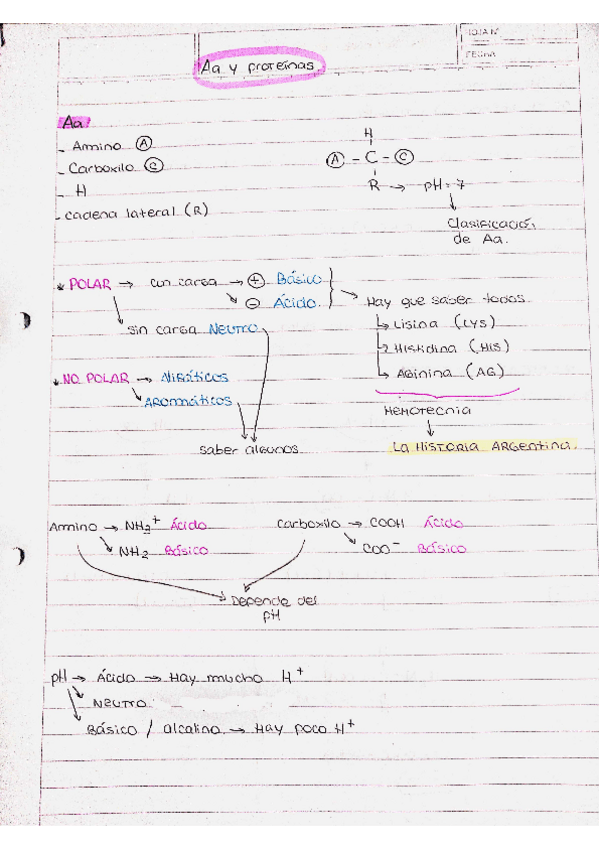 HOJA N°
FECHA
Aa y proteínas
Aa
- Amino Ⓐ
- Carboxilo Ⓒ
- H
- cadena lateral (R)
H
Ⓐ - C - Ⓒ
R → pH = 7
Clasificación
de Aa.
* POLAR → con carga → ⊕ Básico
⊖ Ácido.
sin carga NEUTRO
Hay que saber todos
Lisina (LYS)
Histidina (HIS)
Arginina (AG)
* NO POLAR → Alifáticos
AROMÁTICOS
saber algunos
MEMOTECNIA
LA HISTORIA ARGENTINA.
Amino → NH3+ Ácido
NH2 Básico
Carboxilo → COOH Ácido
COO⁻ Básico
Depende del
pH
pH → Ácido → Hay mucho H⁺
NEUTRO
Básico / alcalino → Hay poco H⁺